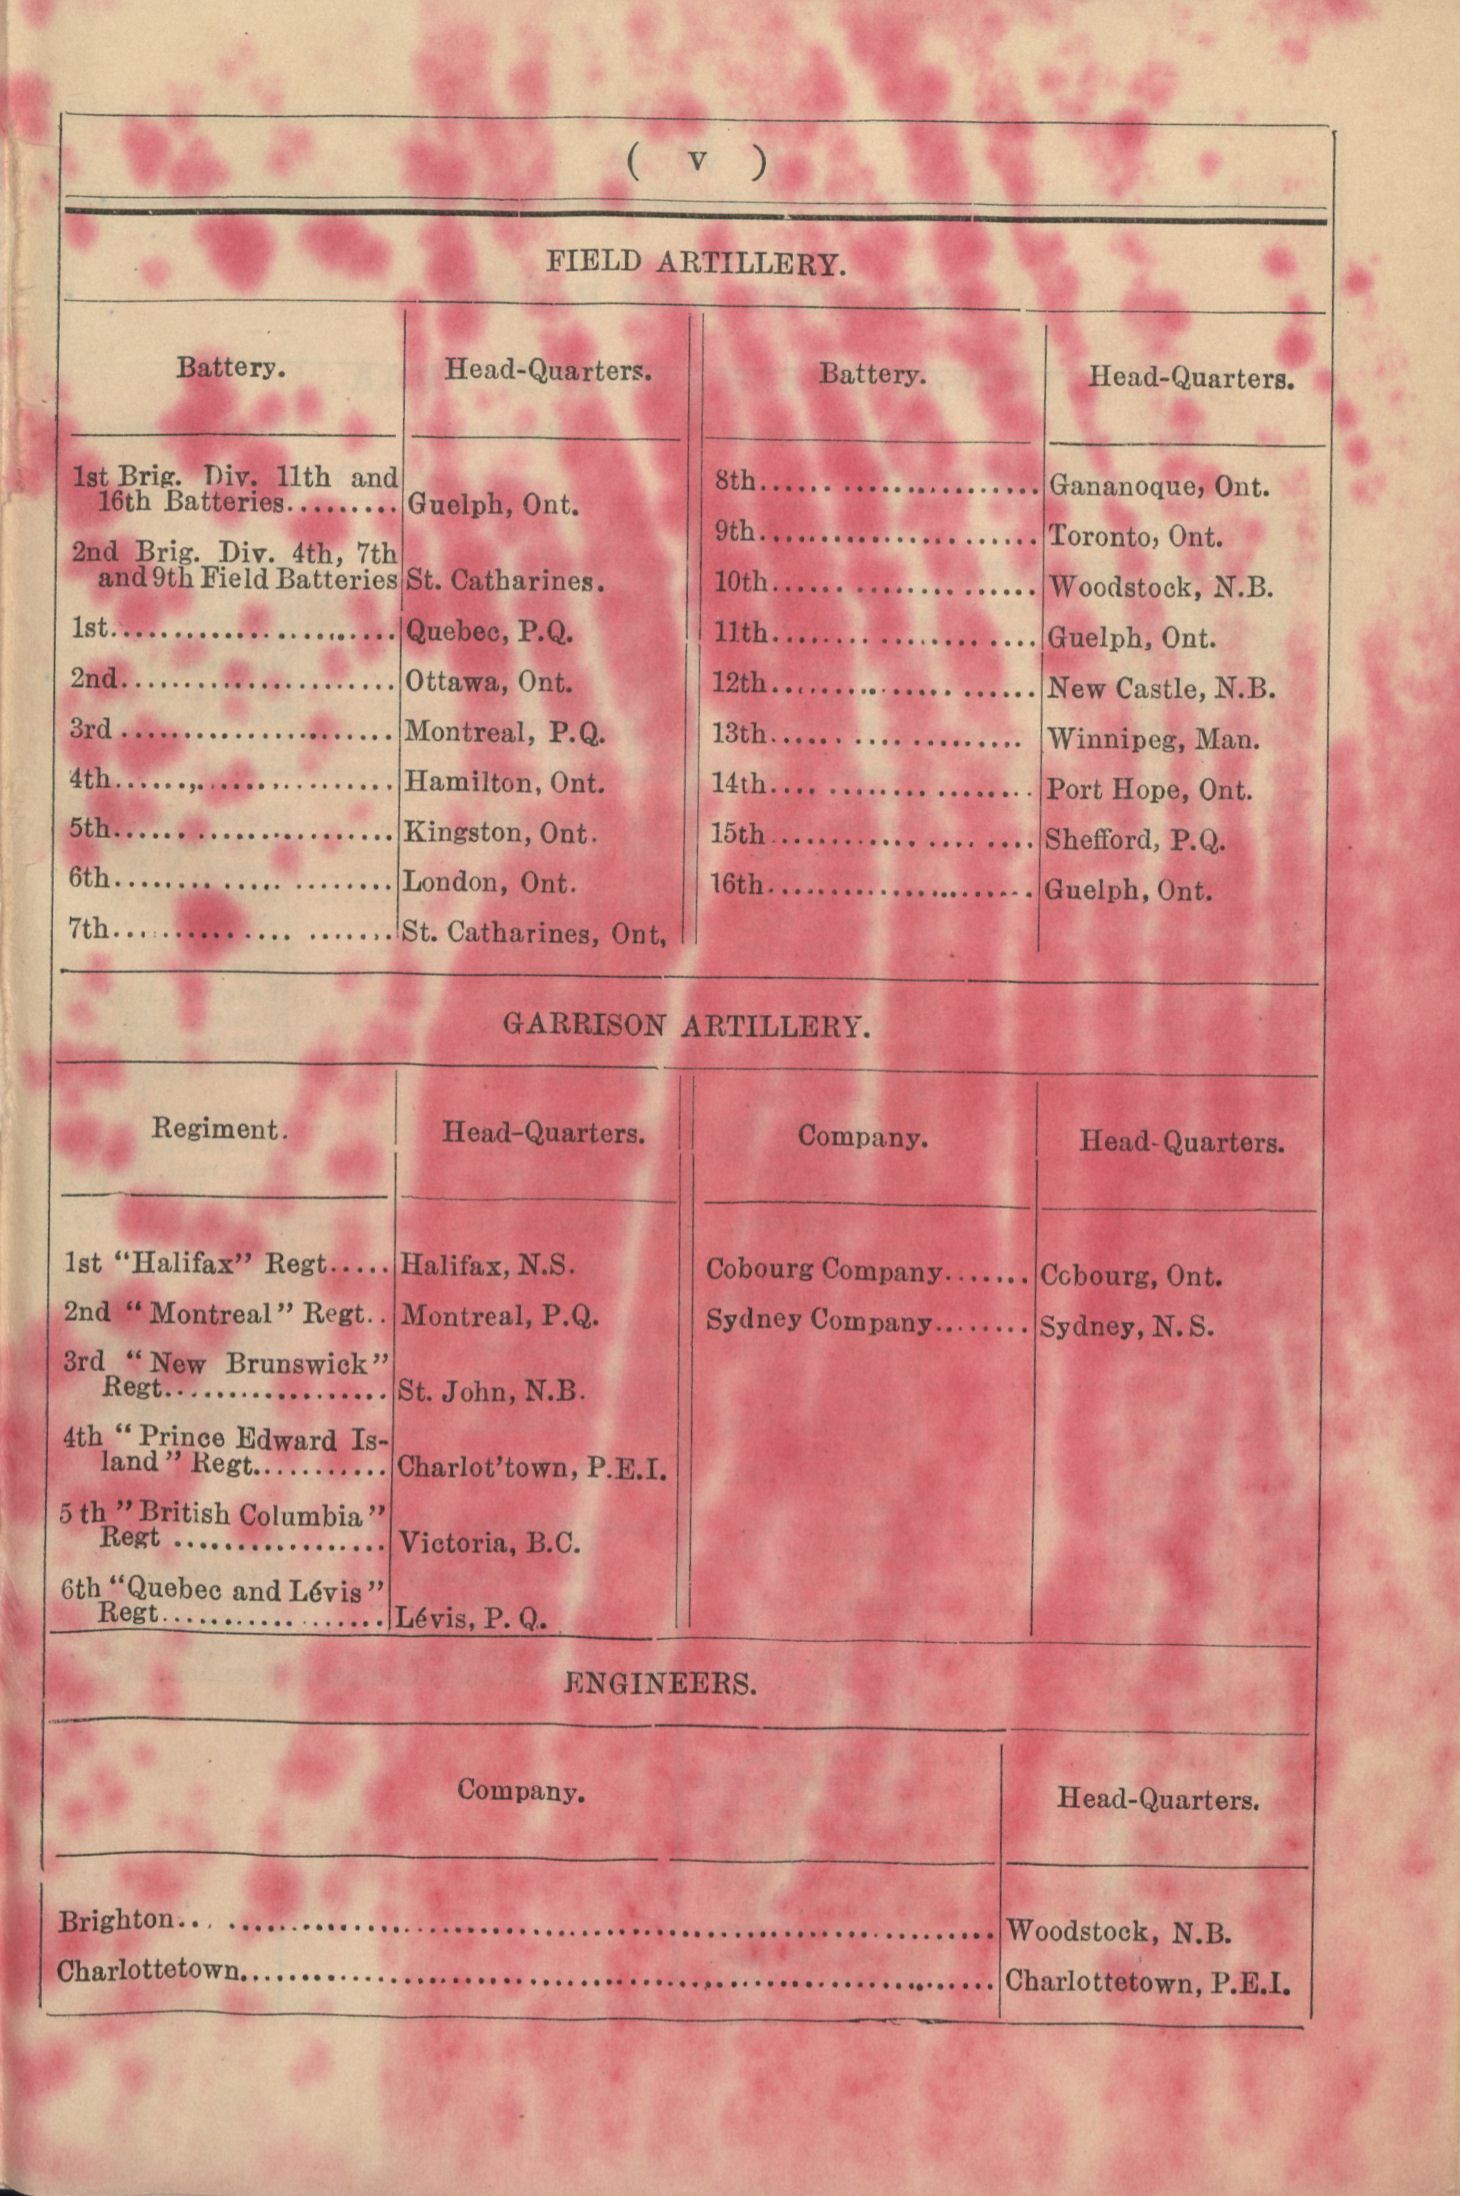 ( v )
FIELD ARTILLERY.
Battery. Head-Quarters. Battery. Head-Quarters.
1st Brig. Div. 11th and
16th Batteries......... Guelph, Ont.
2nd Brig. Div. 4th, 7th
and 9th Field Batteries St. Catharines.
1st....................... Quebec, P.Q.
2nd...................... Ottawa, Ont.
3rd ...................... Montreal, P.Q.
4th....................... Hamilton, Ont.
5th....................... Kingston, Ont.
6th....................... London, Ont.
7th....................... St. Catharines, Ont,
8th....................... Gananoque, Ont.
9th....................... Toronto, Ont.
10th...................... Woodstock, N.B.
11th...................... Guelph, Ont.
12th...................... New Castle, N.B.
13th..................... Winnipeg, Man.
14th...................... Port Hope, Ont.
15th...................... Shefford, P.Q.
16th...................... Guelph, Ont.
GARRISON ARTILLERY.
Regiment. Head-Quarters. Company. Head-Quarters.
1st "Halifax" Regt..... Halifax, N.S.
2nd "Montreal" Regt.. Montreal, P.Q.
3rd "New Brunswick"
Regt.................. St. John, N.B.
4th "Prince Edward Is-
land" Regt........... Charlot'town, P.E.I.
5th "British Columbia"
Regt ................. Victoria, B.C.
6th "Quebec and Lévis"
Regt.................. Lévis, P. Q.
Cobourg Company....... Cobourg, Ont.
Sydney Company........ Sydney, N.S.
ENGINEERS.
Company. Head-Quarters.
Brighton............................................................ Woodstock, N.B.
Charlottetown....................................................... Charlottetown, P.E.I.